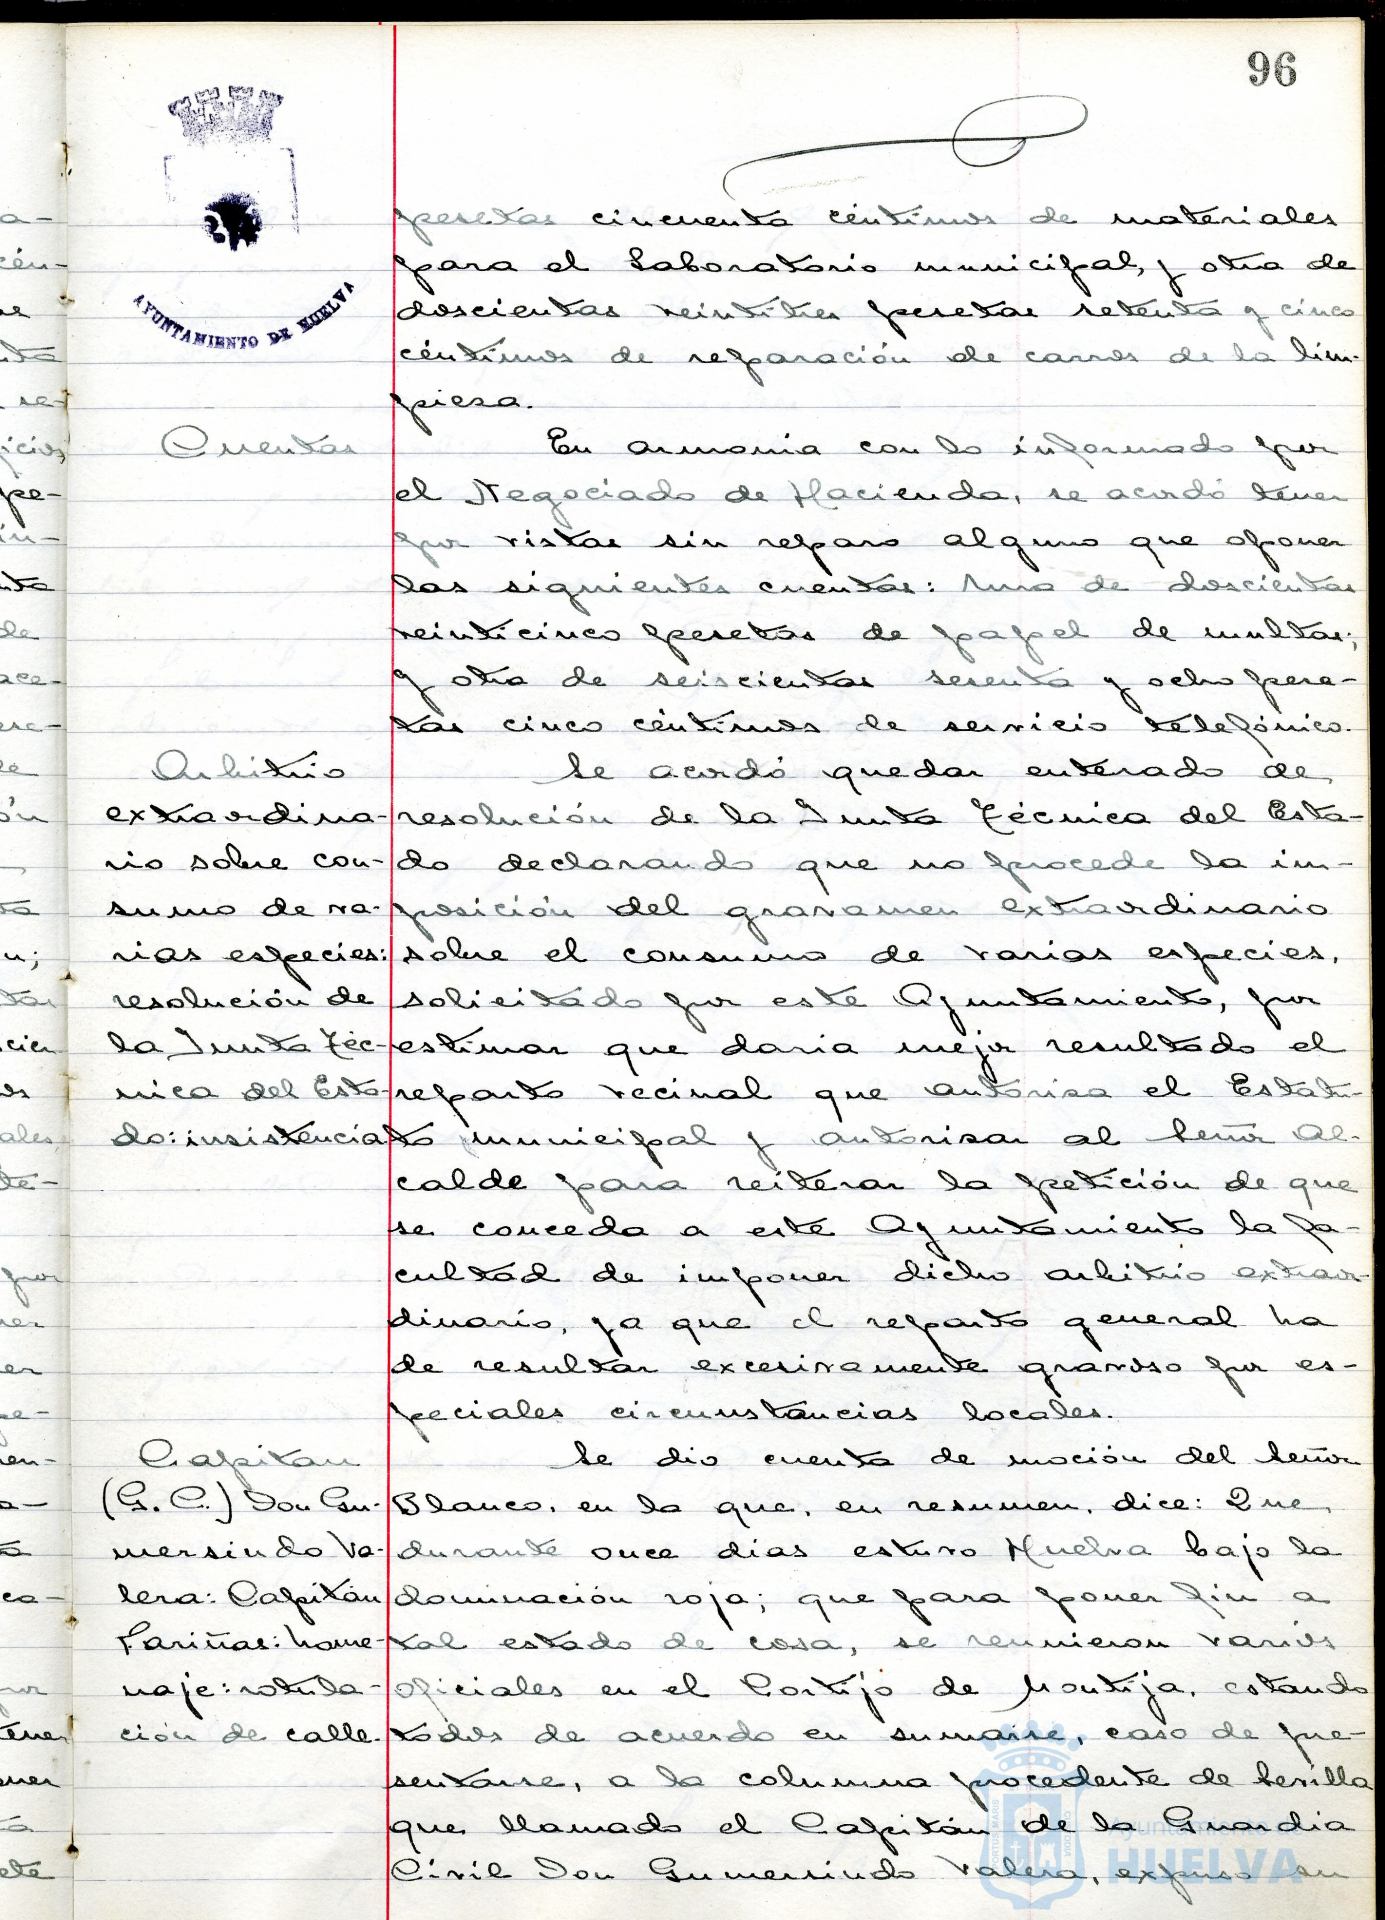 96
AYUNTAMIENTO DE HUELVA
pesetas cincuenta céntimos de materiales
para el Laboratorio municipal, y otra de
doscientas veintitres pesetas setenta y cinco
céntimos de reparación de carros de la lim-
pieza.
Cuentas
En armonia con lo informado por
el Negociado de Hacienda, se acordó tener
por vistas sin reparo alguno que oponer
las siguientes cuentas: Una de doscientas
veinticinco pesetas de papel de multas;
y otra de seiscientas sesenta y ocho pese-
tas cinco céntimos de servicio telefónico.
Arbitrio
extraordina-
rio sobre con-
sumo de va-
rias especies:
resolución de
la Junta Téc-
nica del Esta-
do: insistencia
Se acordó quedar enterado de
resolución de la Junta Técnica del Esta-
do declarando que no procede la im-
posición del gravamen extraordinario
sobre el consumo de varias especies,
solicitado por este Ayuntamiento, por
estimar que daria mejor resultado el
reparto vecinal que autoriza el Estatu-
to municipal y autorizar al Señor Al-
calde para reiterar la petición de que
se conceda a este Ayuntamiento la fa-
cultad de imponer dicho arbitrio extraor-
dinario, ya que el reparto general ha
de resultar excesivamente gravoso por es-
peciales circunstancias locales.
Capitan
(G. C.) Don Gu-
mersindo Va-
lera: Capitán
Fariñas: home-
naje: rotula-
ción de calle.
Se dio cuenta de moción del Señor
Blanco, en la que, en resumen, dice: Que
durante once dias estuvo Huelva bajo la
dominación roja; que para poner fin a
tal estado de cosa, se reunieron varios
oficiales en el Cortijo de Montija, estando
todos de acuerdo en sumarse, caso de pre-
sentarse, a la columna procedente de Sevilla
que llamado el Capitán de la Guardia
Civil Don Gumersindo Valera, expuso su
Ayuntamiento
HUELVA